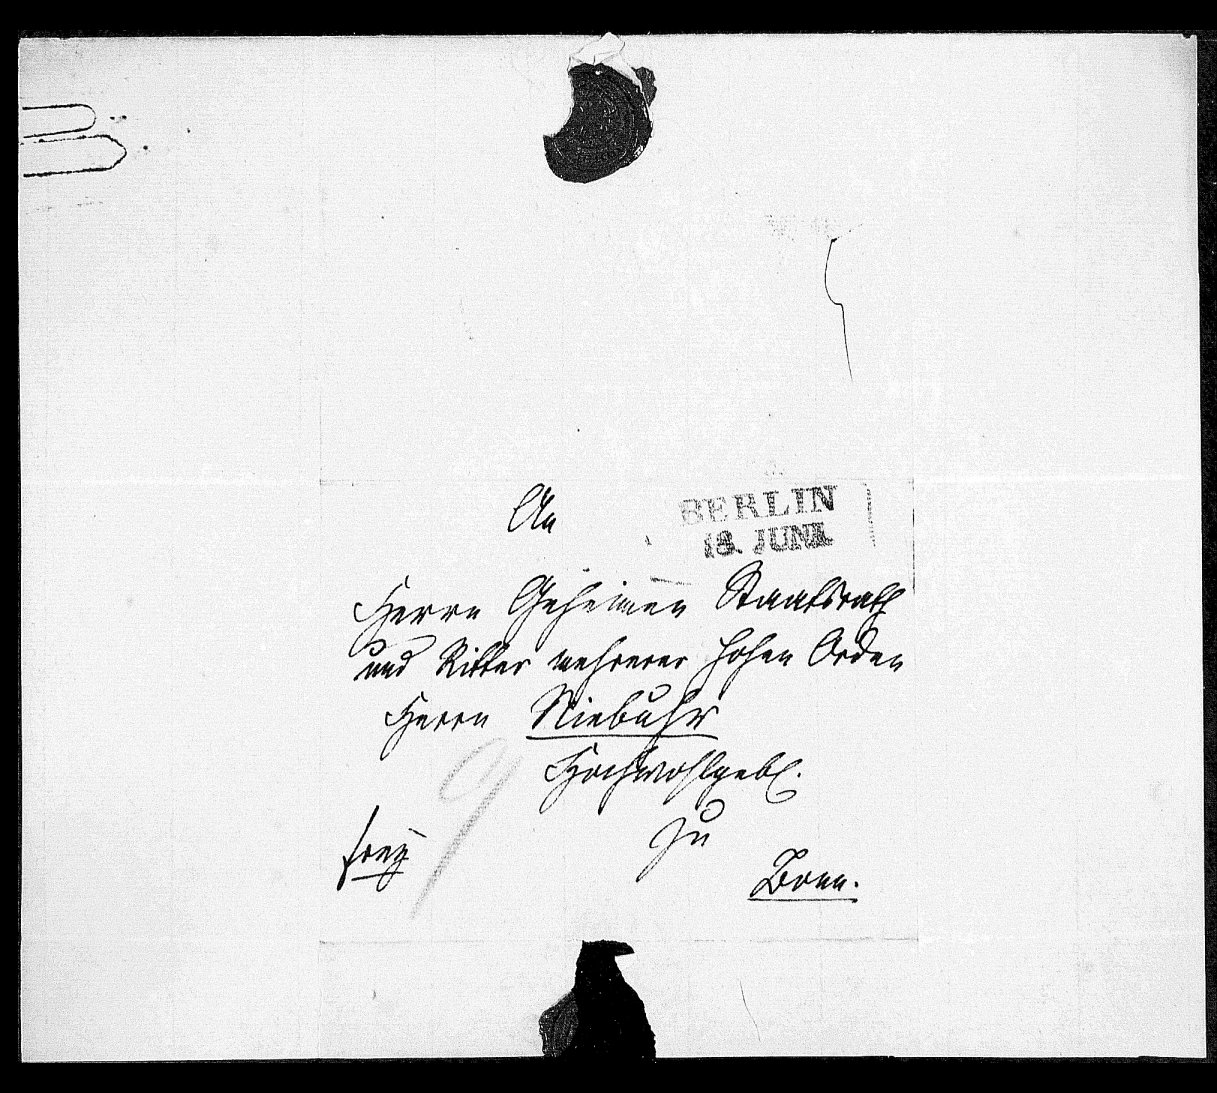 An
BERLIN
18. JUNI.
Herrn Geheimen Staatsrath
und Ritter mehrerer hohen Orden
Herrn Niebuhr
Hochwohlgeb.
9
zu
frey
Bonn.